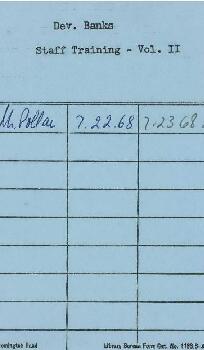 Dev. Banks
Staff Training - Vol. II
M. Pollan 7.22.68 7.23.68
Remington Rand Library Bureau Form Cat. No. 1169.5